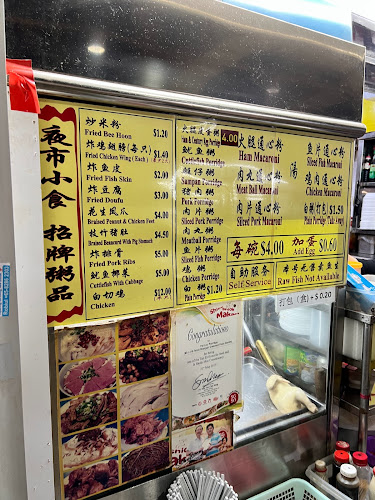 夜市小食 招牌粥品
炒米粉
Fried Bee Hoon $1.20
炸鸡翅膀(每只)
Fried Chicken Wing (Each) $1.40
炸鱼皮
Fried Fish Skin $2.00
炸豆腐
Fried Doufu $3.00
花生凤爪
Braised Peanut & Chicken Feet $4.00
枝竹猪杂
Braised Beancurd With Pig Stomach $4.50
炸排骨
Fried Pork Ribs $5.00
鱿鱼椰菜
Cuttlefish With Cabbage $5.00
白切鸡
Chicken $12.00
鱿鱼粥
Cuttlefish Porridge
艇仔粥
Sampan Porridge
猪肉粥
Pork Porridge
肉片粥
Sliced Pork Porridge
肉丸粥
Meatball Porridge
鱼片粥
Sliced Fish Porridge
鸡粥
Chicken Porridge
白粥
Plain Porridge $1.20
4.00
火腿通心粉
Ham Macaroni
肉丸通心粉
Meat Ball Macaroni
肉片通心粉
Sliced Pork Macaroni
汤
鱼片通心粉
Sliced Fish Macaroni
鸡肉通心粉
Chicken Macaroni
白粥(打包) $1.50
Plain Porridge (Take Away)
每碗$4.00
加蛋 $0.60
Add Egg
自動服务
Self Service
本号无售卖鱼生
Raw Fish Not Available
打包(盒)+ $0.20
Congratulations